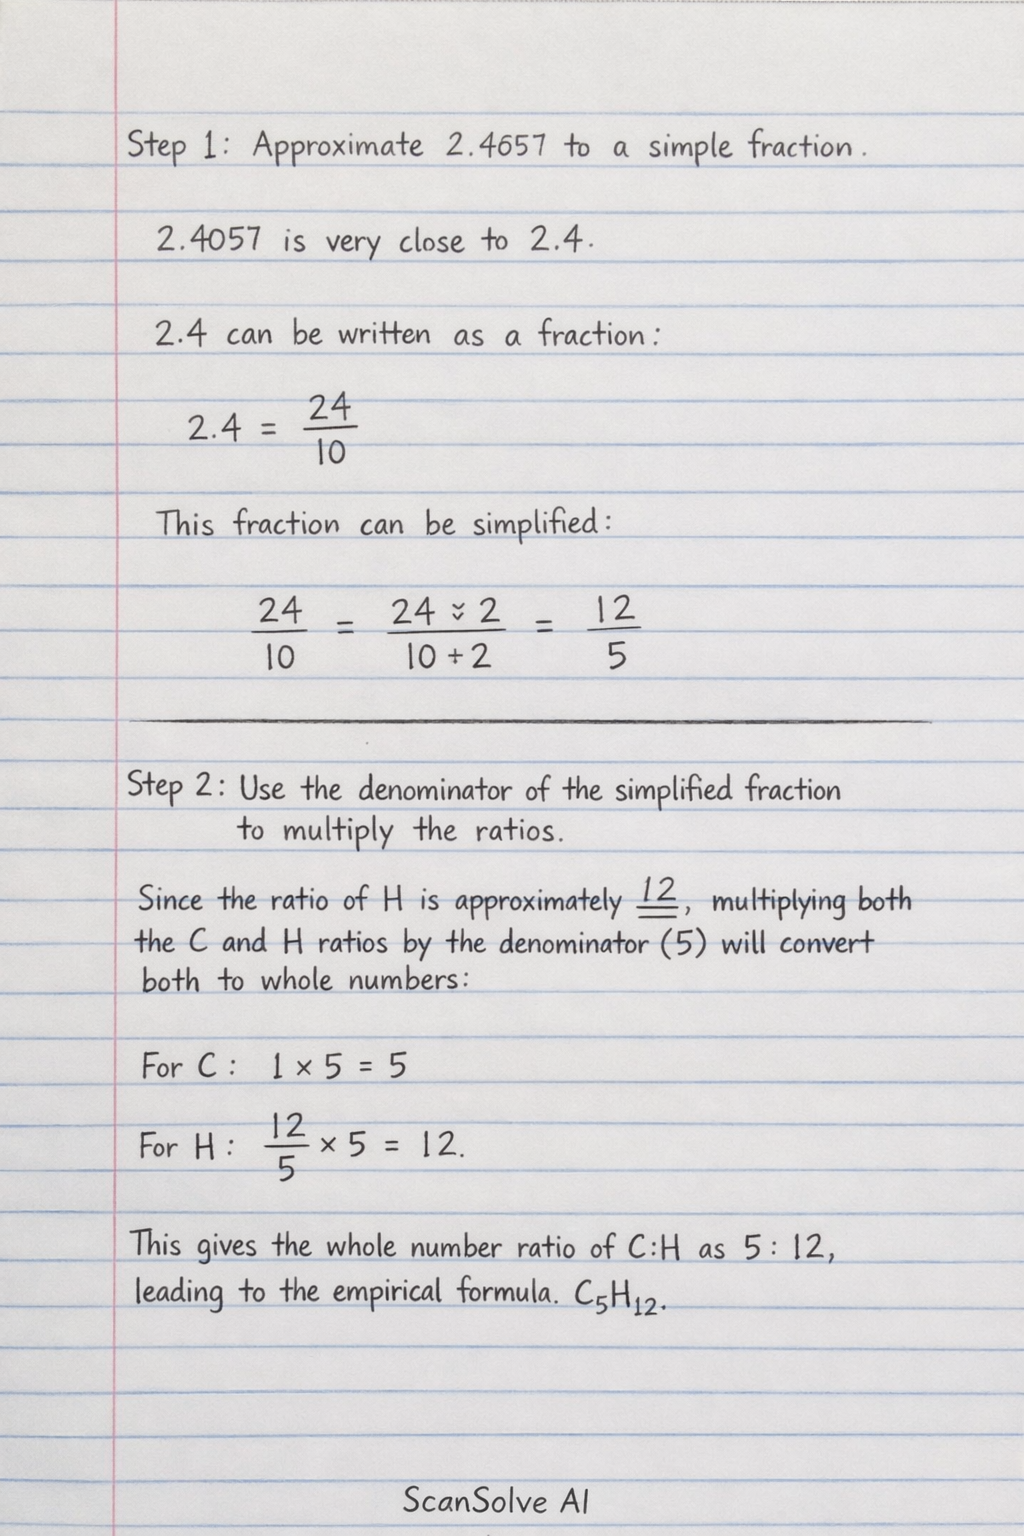 Step 1: Approximate 2.4657 to a simple fraction.
2.4057 is very close to 2.4.
2.4 can be written as a fraction:
2.4 = 24/10
This fraction can be simplified:
24/10 = 24 ÷ 2/10 ÷ 2 = 12/5
Step 2: Use the denominator of the simplified fraction
to multiply the ratios.
Since the ratio of H is approximately 12, multiplying both
the C and H ratios by the denominator (5) will convert
both to whole numbers:
For C: 1 × 5 = 5
For H: 12/5 × 5 = 12.
This gives the whole number ratio of C:H as 5 : 12,
leading to the empirical formula. C₅H₁₂.
ScanSolve AI